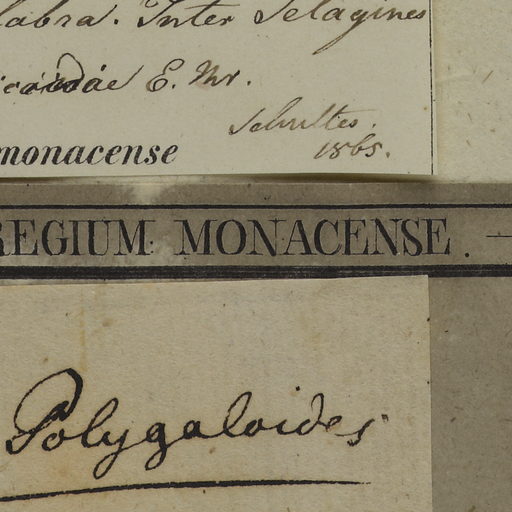 labra. Inter Selagines
E. Mr.
Schultes.
monacense 1865.
REGIUM MONACENSE.
Polygaloides